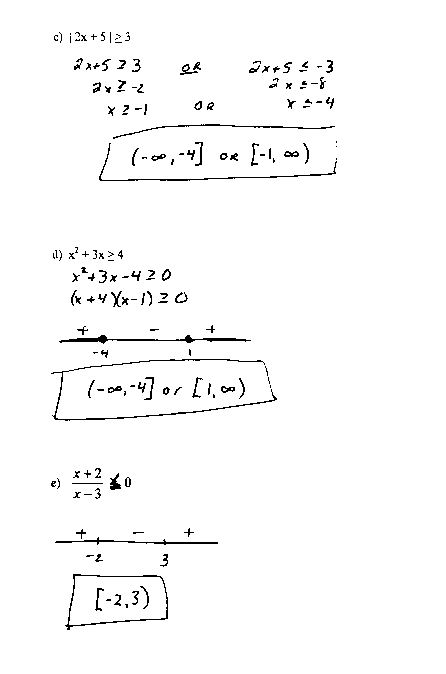 c) |2x + 5| ≥ 3
2x+5 ≥ 3 OR 2x+5 ≤ -3
2x ≥ -2 2x ≤ -8
x ≥ -1 OR x ≤ -4
(-∞, -4] OR [-1, ∞)
d) x² + 3x ≥ 4
x²+3x-4 ≥ 0
(x+4)(x-1) ≥ 0
+ - +
-4 1
(-∞, -4] or [1, ∞)
e) (x+2)/(x-3) ≤ 0
+ - +
-2 3
[-2, 3)